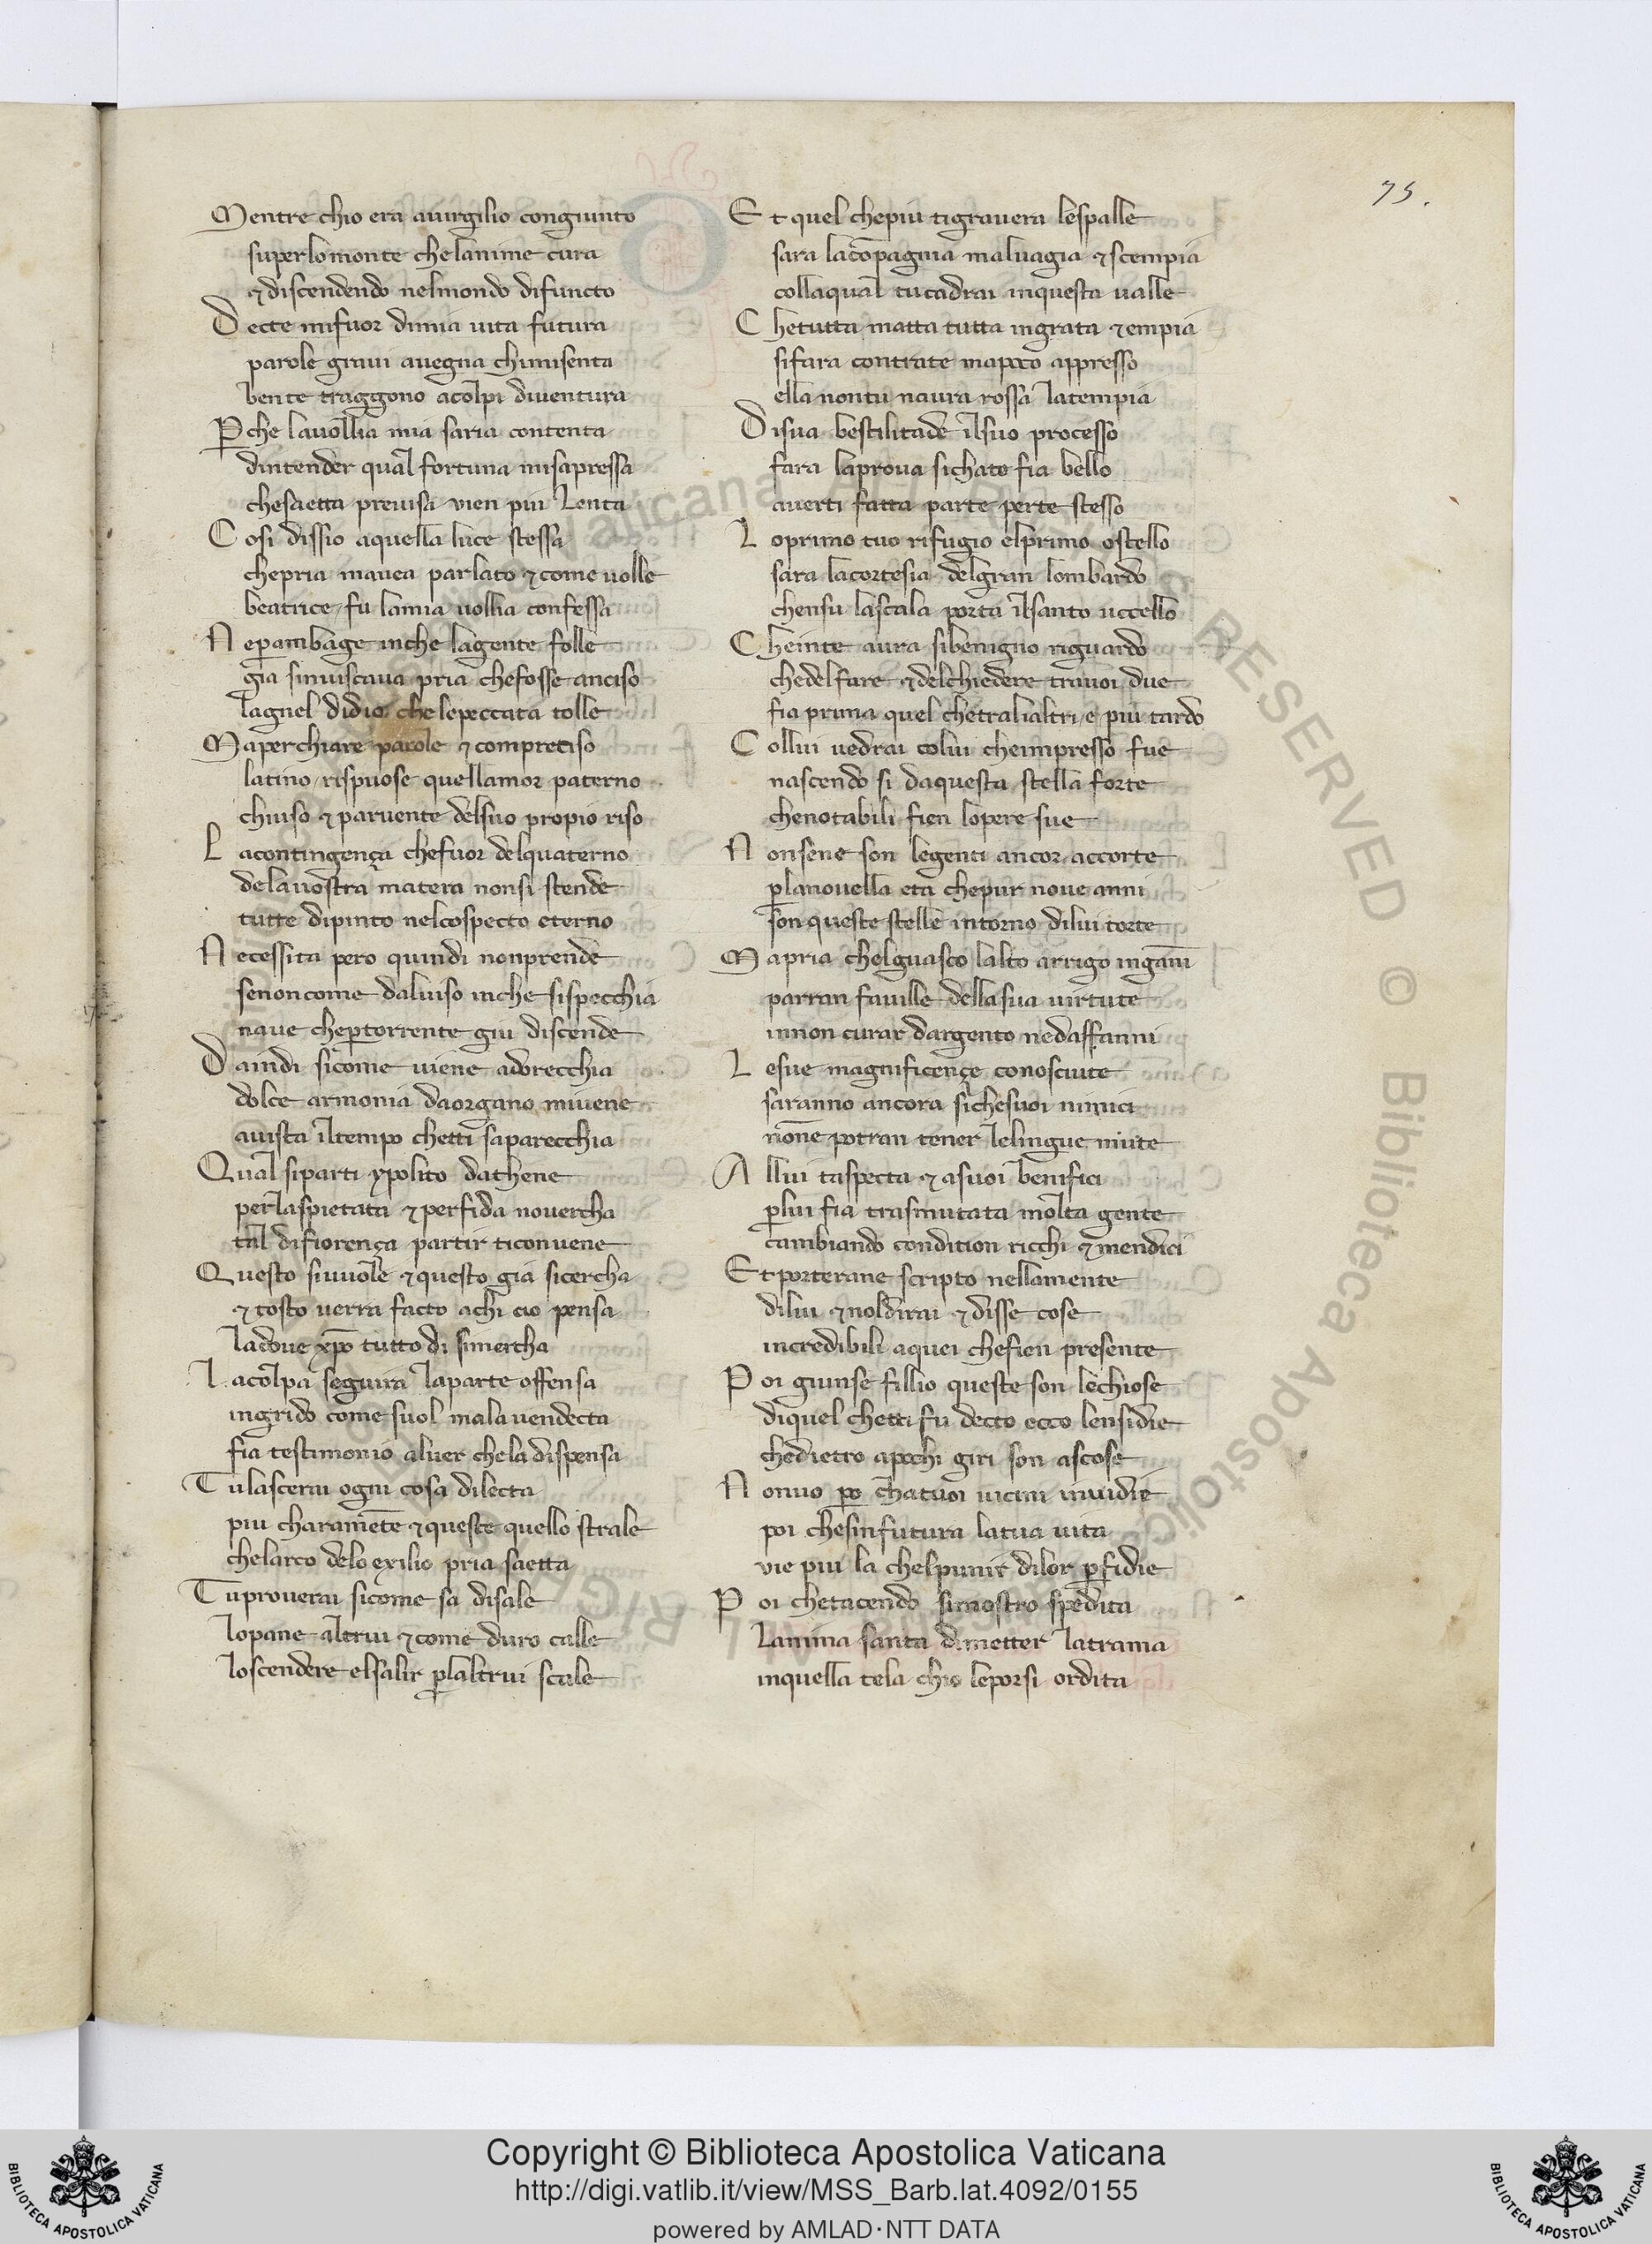 75.
Mentre chio era auirgilio congiunto
superlomonte chelanime cura
⁊ discendendo nelmondo difuncto
Decte mifuor dimia uita futura
parole graui auegna chimisenta
bente traggono acolpi diuentura
Pche lauollia mia saria contenta
dintender qual fortuna misapressa
chesaetta preuisa uien piu lenta
Cosi dissio aquella luce stessa
chepria mauea parlato ⁊ come uolle
beatrice fu lamia uollia confessa
Ne pambage inche lagente folle
gia sinuiscaua pria chefosse anciso
lagnel didio che lepeccata tolle
Maperchiare parole ⁊ compreciso
latino rispuose quellamor paterno
chiuso ⁊ paruente delsuo propio riso
Lacontingença chefuor delquaterno
delauostra matera nonsi stende
tutte dipinto nelcospecto eterno
Necessita pero quindi nonprende
senoncome daluiso inche sispecchia
naue cheptorrente giu discende
Daindi sicome uiene adorecchia
dolce armonia daorgano miuene
auista iltempo chetti saparecchia
Qual siparti ypolito dathene
perlaspietata ⁊ perfida nouercha
tal difiorença partir ticonuene
Questo siuuole ⁊ questo gia sicercha
⁊ tosto uerra facto achi cio pensa
ladoue xpo tutto di simercha
Lacolpa seguira laparte offensa
ingrido come suol mala uendecta
fia testimonio aluer chela dispensa
Tulascerai ogni cosa dilecta
piu charamete ⁊ queste quello strale
chelarco delo exilio pria saetta
Tuprouerai sicome sa disale
lopane altrui ⁊ come duro calle
loscendere elsalir plaltrui scale
Et quel chepiu tigrauera lespalle
sara lacopagnia maluagia ⁊ scempia
collaqual tucadrai inquesta ualle
Chetutta matta tutta ingrata ⁊ empia
sifara contrate mapoco appresso
ella nontu naura rossa latempia
Disua bestilitade ilsuo processo
fara laproua sichate fia bello
auerti fatta parte perte stesso
Loprimo tuo rifugio elprimo ostello
sara lacortesia delgran lombardo
chensu lascala porta ilsanto uccello
Cheinte aura sibenigno riguardo
chedelfare ⁊ delchiedere trauoi due
fia prima quel chetralialtri e piu tardo
Collui uedrai colui cheimpresso fue
nascendo si daquesta stella forte
chenotabili fien lopere sue
Nonsene son legenti ancor accorte
planouella eta chepur noue anni
son queste stelle intorno dilui torte
Mapria chelguasco lalto arrigo inganni
parran fauille dellasua uirtute
innon curar dargento nedaffanni
Lesue magnificençe conosciute
saranno ancora sichesuoi nimici
none potran tener lelingue mute
Allui taspecta ⁊ asuoi benifici
plui fia trasmutata molta gente
cambiando condition ricchi ⁊ mendici
Et porterane scripto nellamente
dilui ⁊ noldirai ⁊ disse cose
incredibili aquei chefien presente
Poi giunse fillio queste son lechiose
diquel chetti fu decto ecco lensidie
chedietro apochi giri son ascose
Nonuo po chatuoi uicini inuidie
poi chesinfutura latua uita
uie piu la chelpunir dilor pfidie
Poi chetacendo simostro spedita
lanima santa dimetter latrama
inquella tela chio leporsi ordita
Copyright © Biblioteca Apostolica Vaticana
http://digi.vatlib.it/view/MSS_Barb.lat.4092/0155
powered by AMLAD·NTT DATA